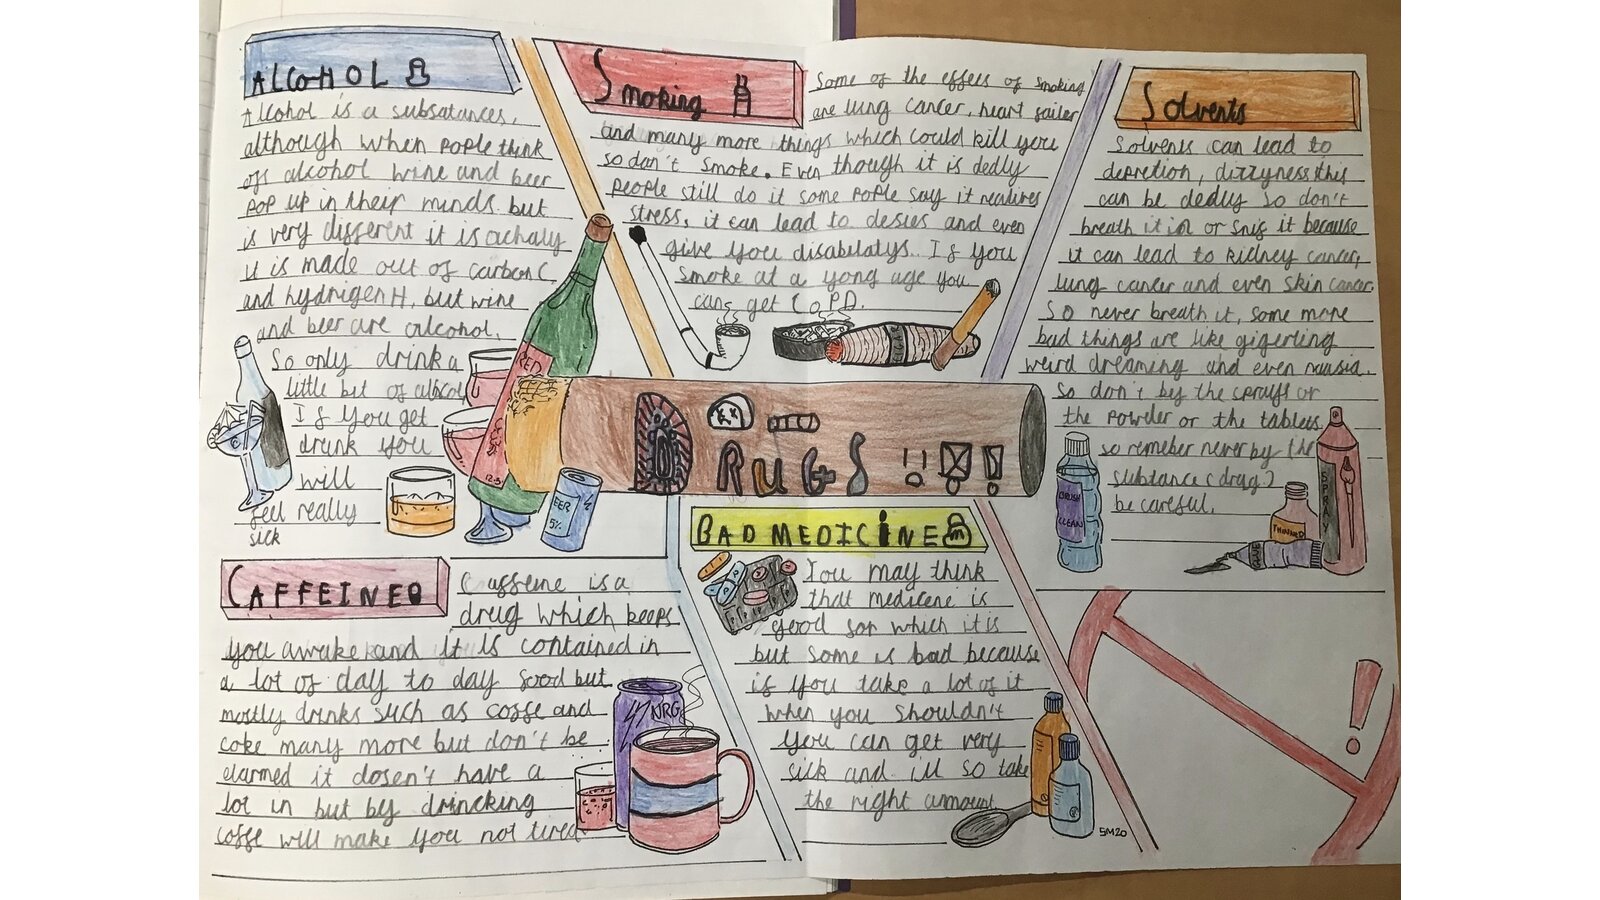 ALCOHOL
Alcohol is a subsatances,
although when pople think
of alcohol wine and beer
pop up in their minds but
is very different it is achaly
it is made out of carbon C
and hydrigen H, but wine
and beer are alcohol.
So only drink a
little bit of alocol
If you get
drunk you
will
feel really
sick
RED
12.5%
BEER
5%
Smoking
Some of the effects of smoking
are lung cancer, heart failer
and many more things which could kill you
so dan't smoke. Even though it is dedly
people still do it some pople say it realives
stress, it can lead to desies and even
give you disabilatys. If you
smoke at a yong age you
can get CoPD.
CIGAR
Solvents
Solvents can lead to
depretion, dizzyness this
can be dedly so don't
breath it in or snif it because
it can lead to kidney cancer,
lung cancer and even skin cancer
So never breath it, some more
bad things are like gigerling
weird dreaming and even nausia.
So don't by the sprays or
the powder or the tablets
so remeber never by the
substance (drug)
be careful.
BRUSH
CLEAN
SPRAY
THINNER
GLUE
DRUGS !! !!
CAFFEINE
Caffeine is a
drug which keeps
you awake and it is contained in
a lot of day to day food but
mostly drinks such as coffe and
coke many more but don't be
elarmed it dosen't have a
lot in but by drincking
coffe will make you not tired
NRG
BAD MEDICINE
You may think
that medicene is
good for which it is
but some is bad because
if you take a lot of it
when you shouldn't
you can get very
sick and ill so take
the right amount.
SM20
!